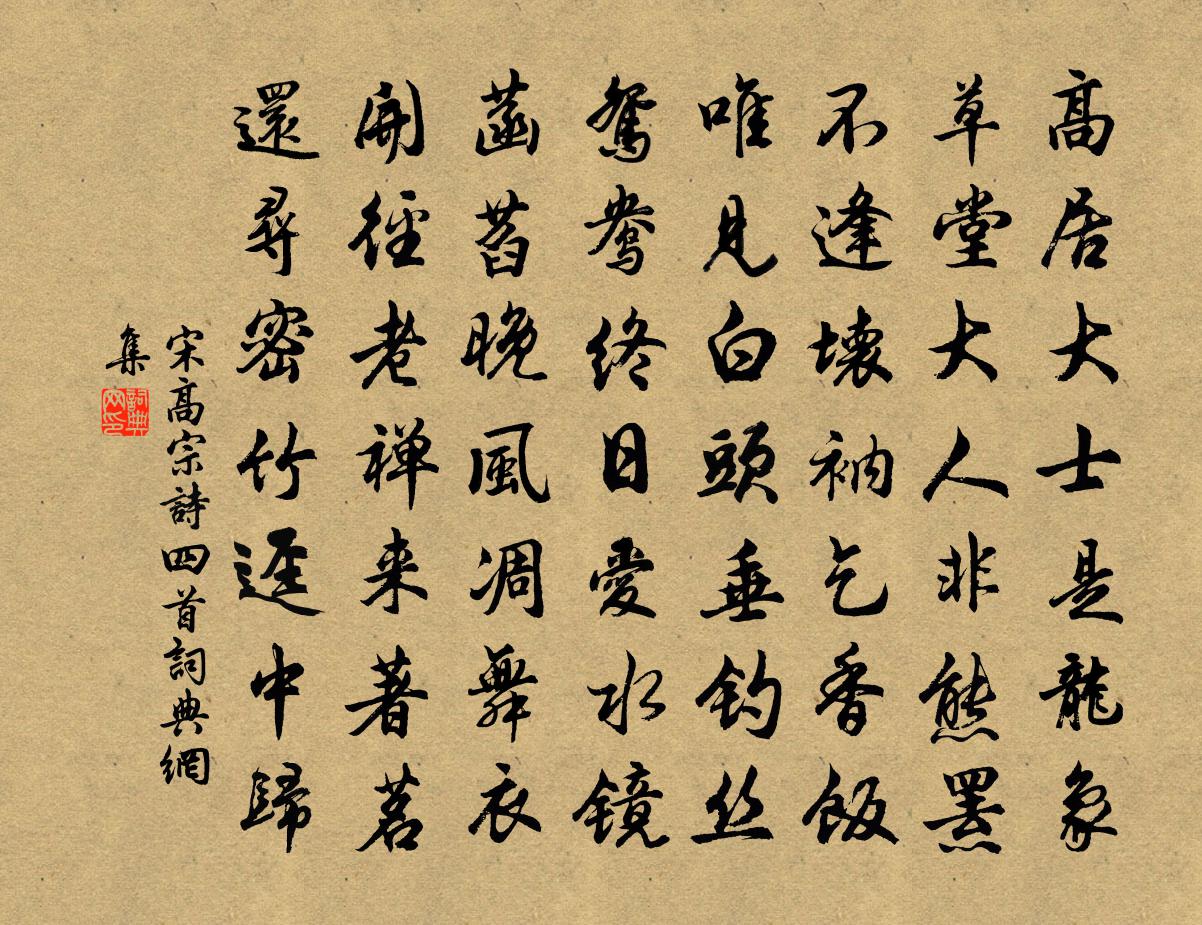 高居大士是龍象
草堂大人非熊羆
不逢壞衲乞香飯
唯見白頭垂釣丝
鴛鴦終日愛水鏡
菡萏晚風凋舞衣
開徑老禅来著茗
還尋密竹逕中歸
宋高宗詩四首詞典網
集
詞典
网印